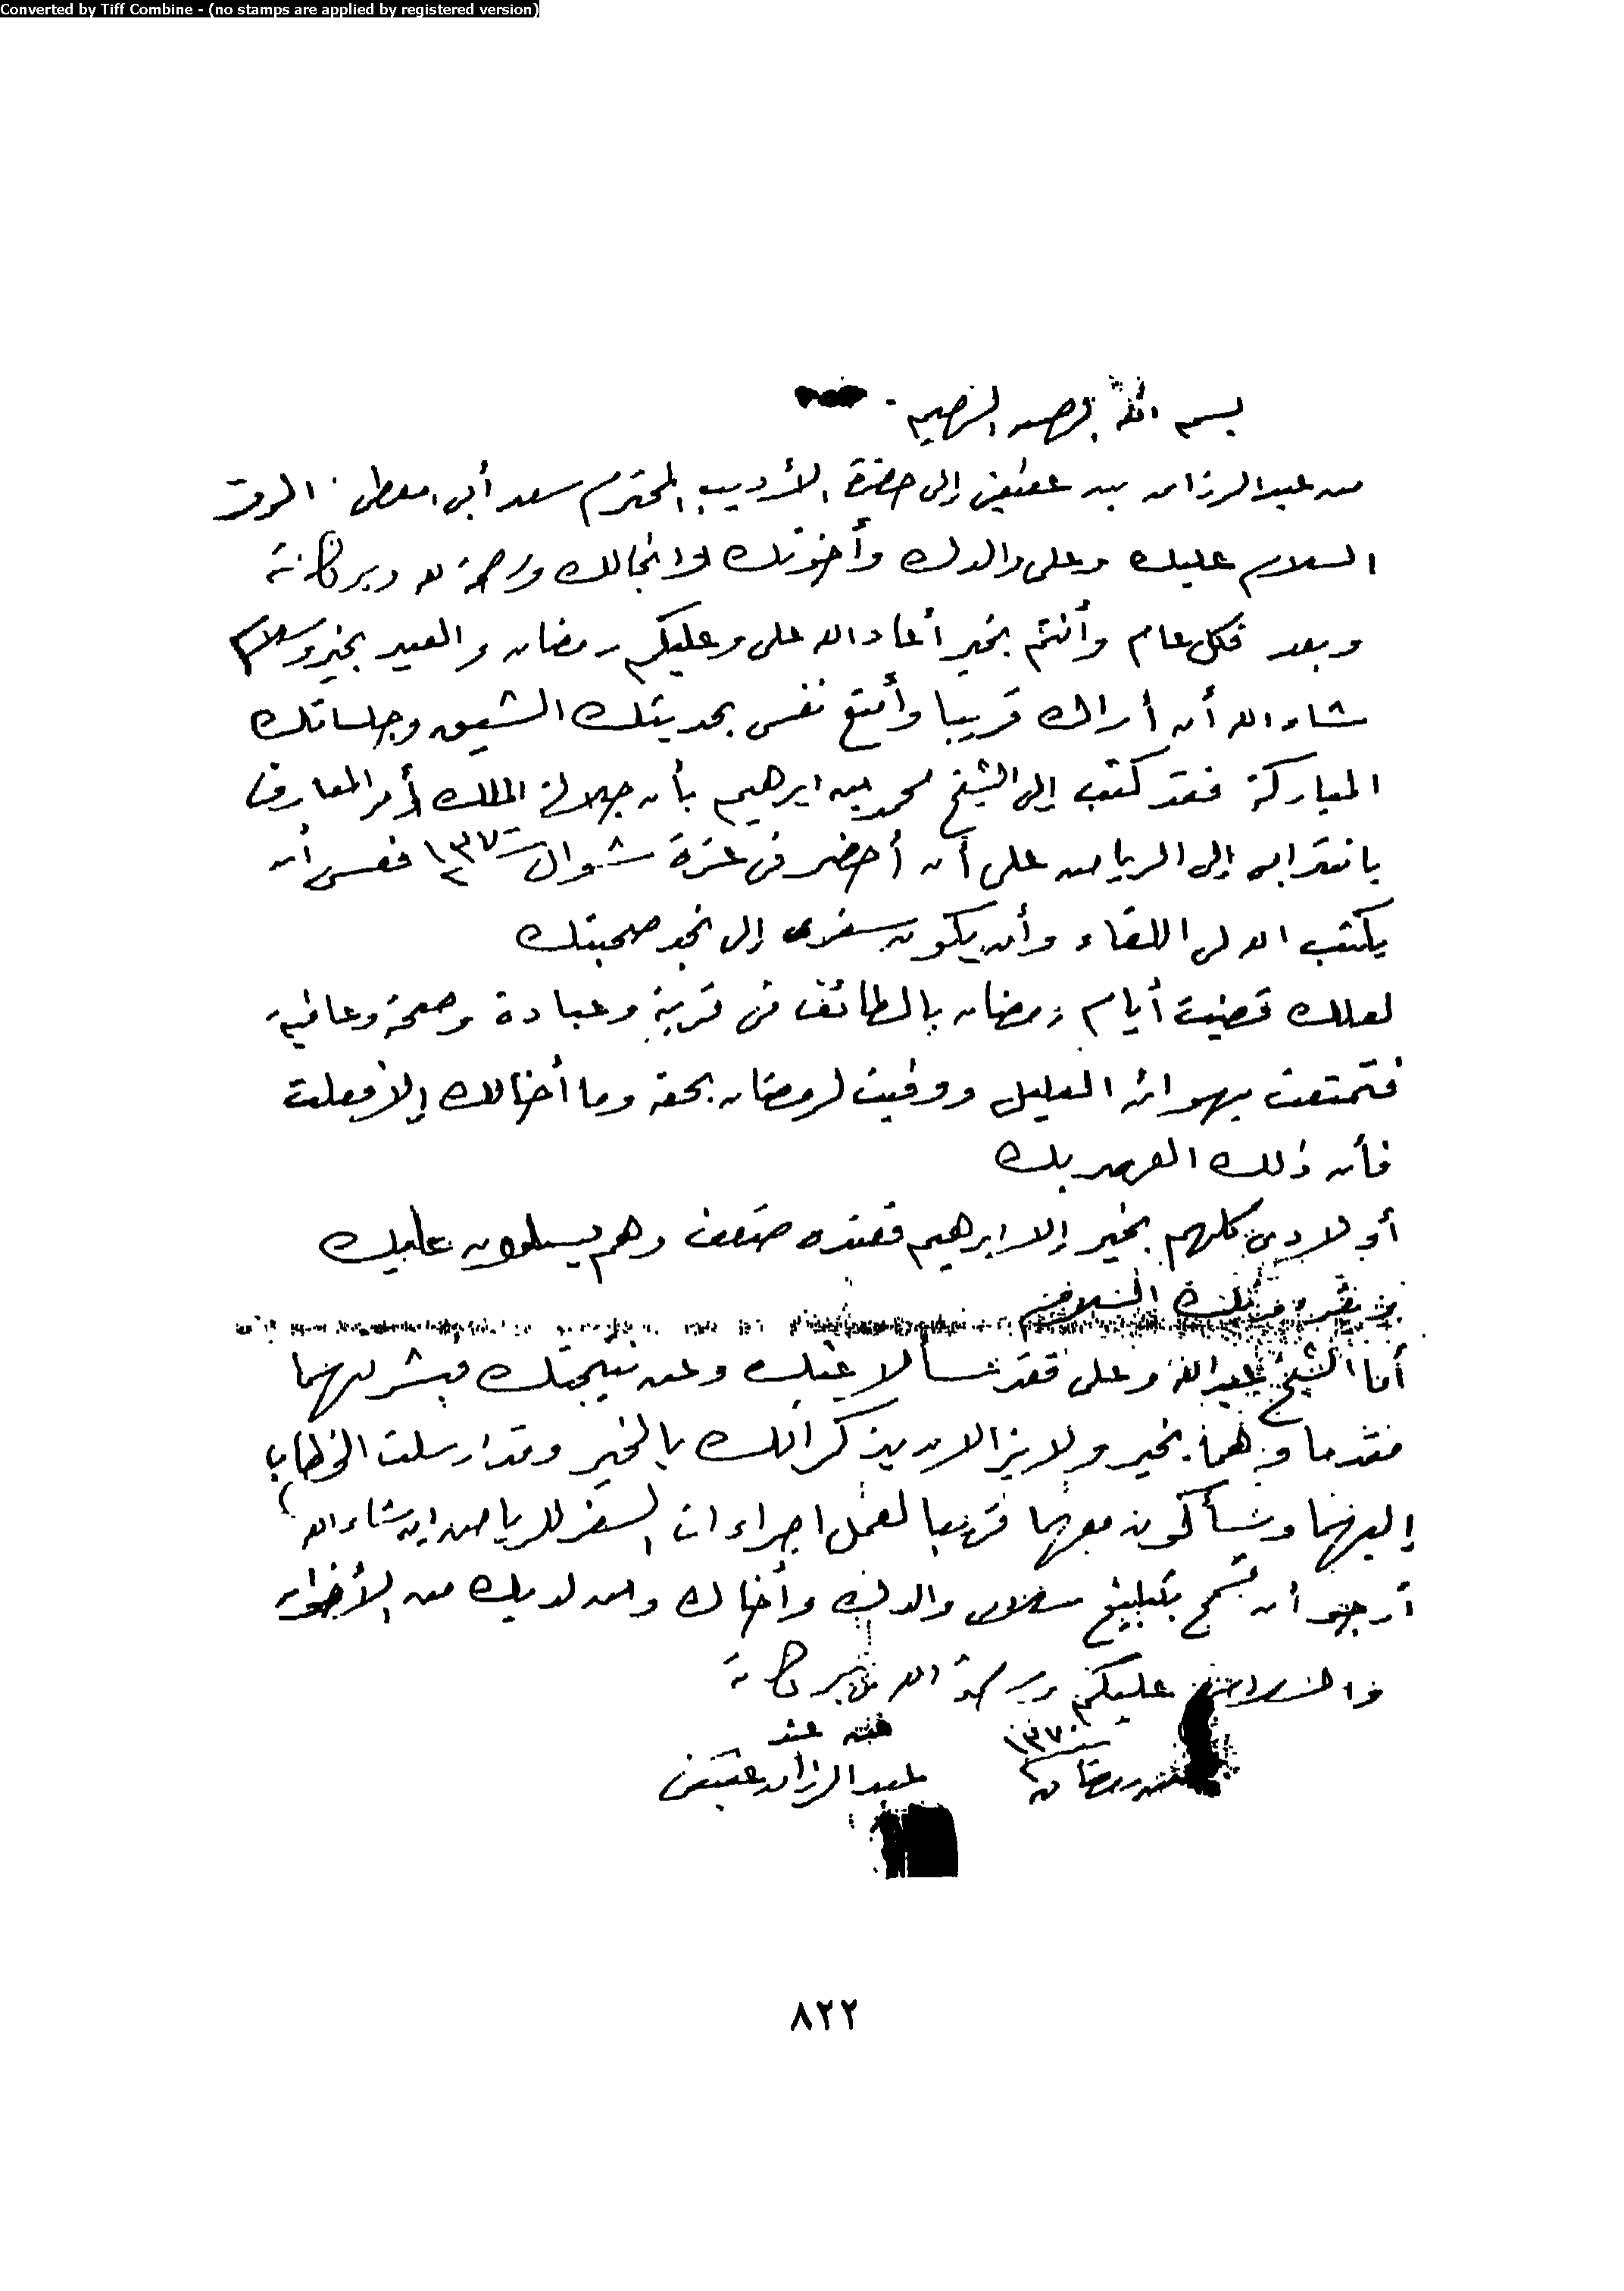 Converted by Tiff Combine - (no stamps are applied by registered version)
بسم الله الرحمن الرحيم
من عبد الرزاق بن عفيفي إلى حضرة الأديب المحترم سعد أبي معطي الموقر
السلام عليك وعلى والدك وأخوتك وانجالك ورحمة الله وبركاته
وبعد فكل عام وأنتم بخير أعاد الله علي وعليكم رمضان والعيد بخير وسلام
شاء الله أن أراك قريبا وأمتع نفسي بحديثك الشيق وجلساتك
المباركة فقد كتب إلى الشيخ محمد بن ابراهيم بأن جلالة الملك أمر المعارف
بانتدابي إلى الرياض على أن أحضر في غرة شوال ١٣٧٠ فعسى أن
يكتب الله لي اللقاء وأن يكون سفري إلى نجد صحبتك
لعلك قضيت أيام رمضان بالطائف في قربة وعبادة وصحة وعافية
فتمتعت بهوائه العليل ووفيت لرمضان بحقه وما أخالك إلا فعلت
فأن ذلك العهد بك
أولادي كلهم بخير إلا ابراهيم فعنده ضعف وهم يسلمون عليك
السلام
أما الشيخ عبد الله وعلي فقد سألا عنك وعن نتيجتك فبشرتهما
بخير ولا يزالان يذكرانك بالخير وقد ارسلت الخطاب
إليهما وسأكون معهما قريبا لعمل اجراءات السفر للرياض ان شاء الله
أرجو أن تسمح بتبليغ سلامي والدك وأخاك ومن لديك من الأخوان
والسلام عليكم ورحمة الله وبركاته
١٣٧٠
رمضان عبد الرزاق عفيفي
٨٢٢